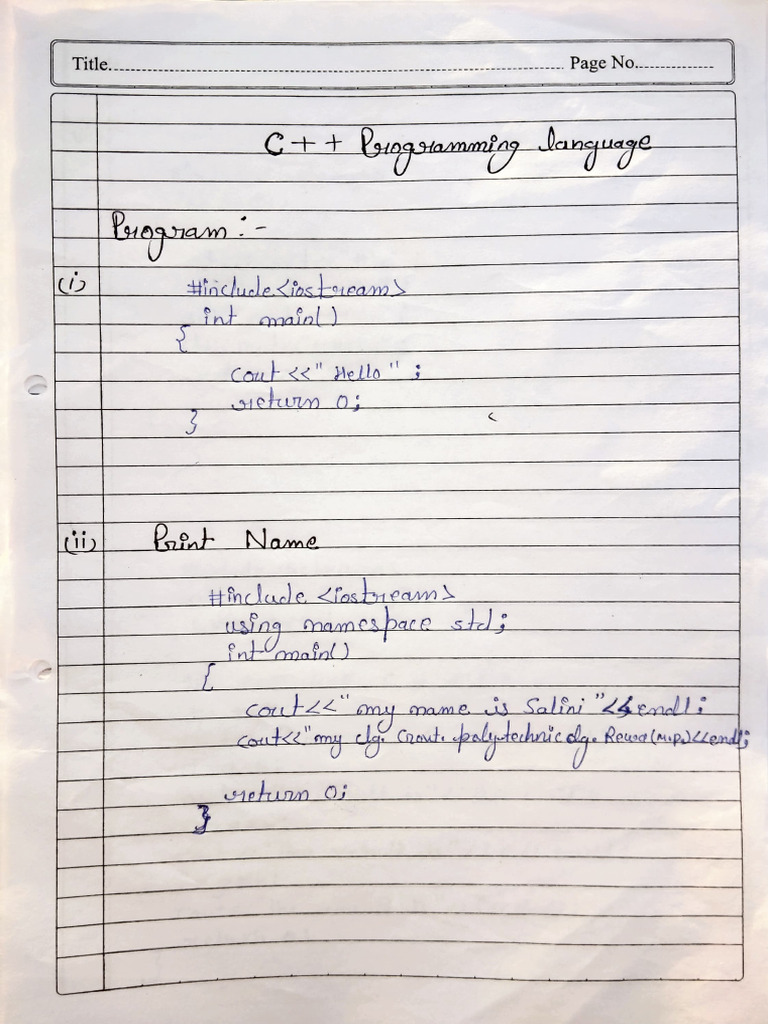 Title
Page No.
C++ Programming language
Program :-
(i)
#include<iostream>
int main()
{
cout <<" Hello " ;
return 0;
}
(ii) Print Name
#include <iostream>
using namespace std;
int main()
{
cout<<" my name is Salini "<< endl;
cout<<"my clg. Govt. polytechnic clg. Rewa(M.P.)<<endl;
return 0;
}